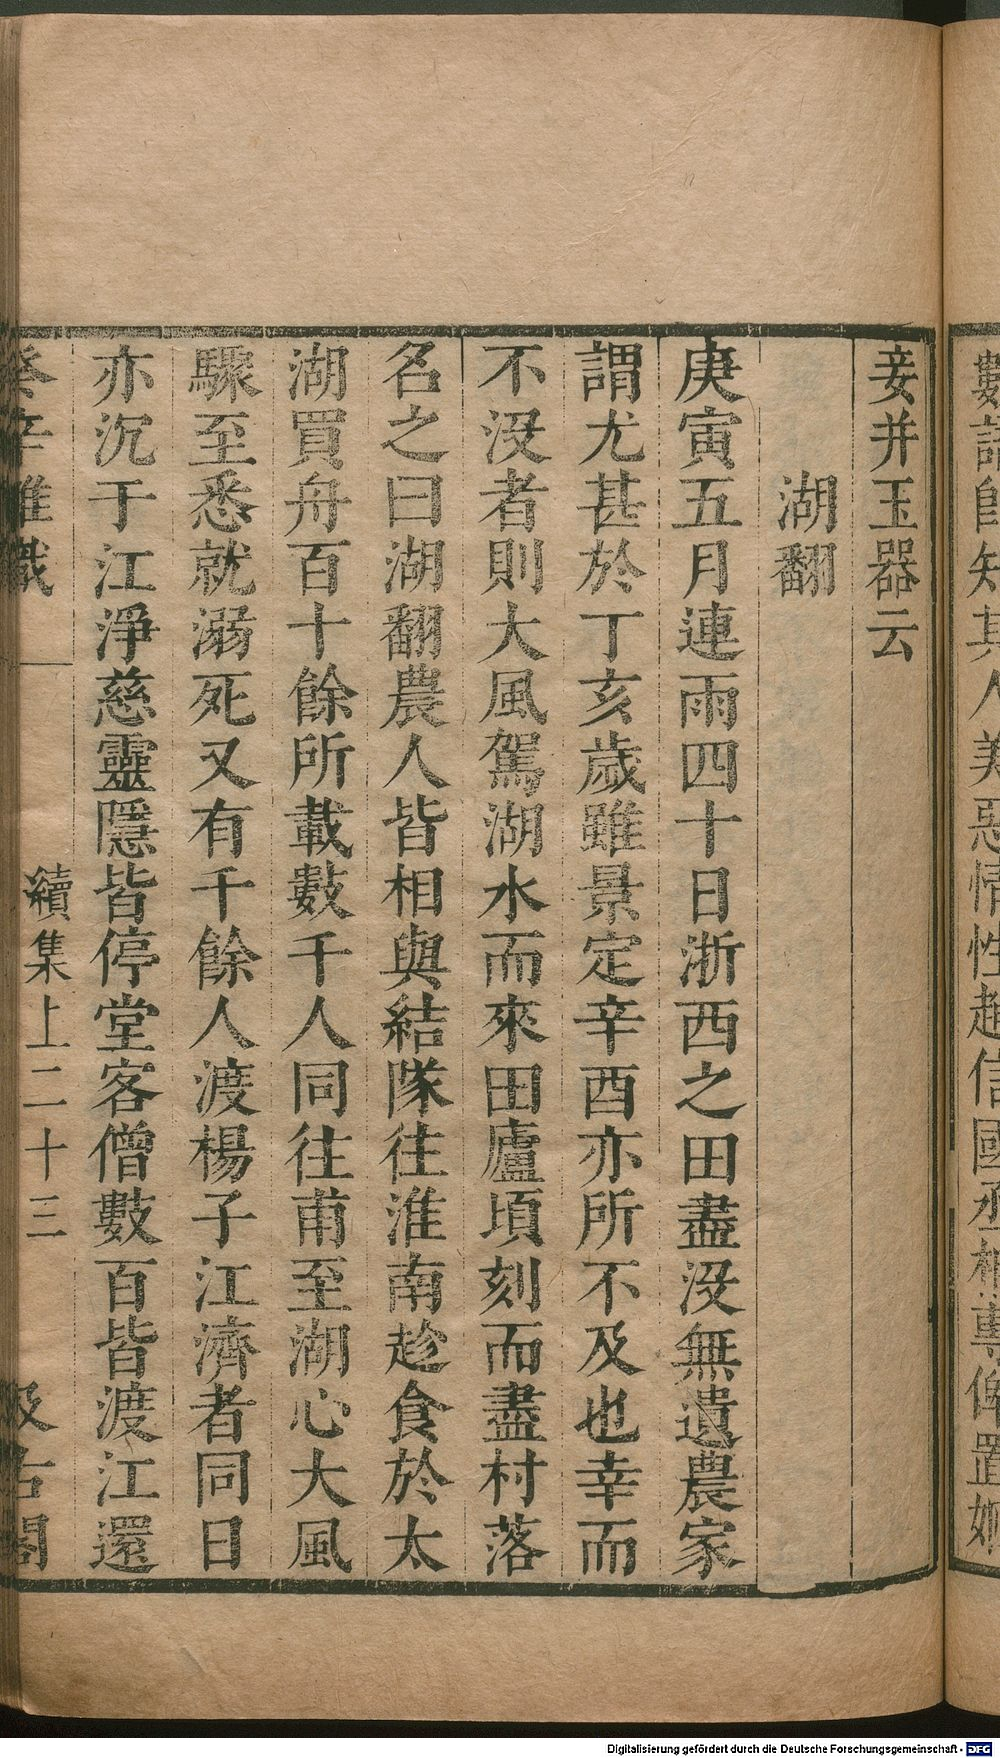 數語即知其人美惡情性趙信國丞相專俾置姬
妾并玉器云
湖翻
庚寅五月連雨四十日浙西之田盡没無遺農家
謂尤甚於丁亥歲雖景定辛酉亦所不及也幸而
不没者則大風駕湖水而來田廬頃刻而盡村落
名之曰湖翻農人皆相與結隊往淮南趁食於太
湖買舟百十餘所載數千人同往甫至湖心大風
驟至悉就溺死又有千餘人渡楊子江濟者同日
亦沉于江淨慈靈隱皆停堂客僧數百皆渡江還
癸辛雜識 續集上二十三 汲古閣
Digitalisierung gefördert durch die Deutsche Forschungsgemeinschaft - DFG